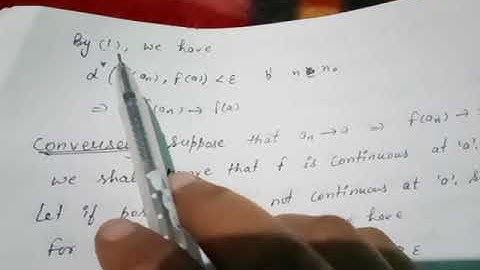 By (1), we have
d* ( (an), f(a)) < ε ∀ n ≥ n₀
⇒ f(an) → f(a)
Converse suppose that an → a ⇒ f(an) →
we sha that f is continuous at 'a'.
Let if not continuous at 'a',
for have
ε